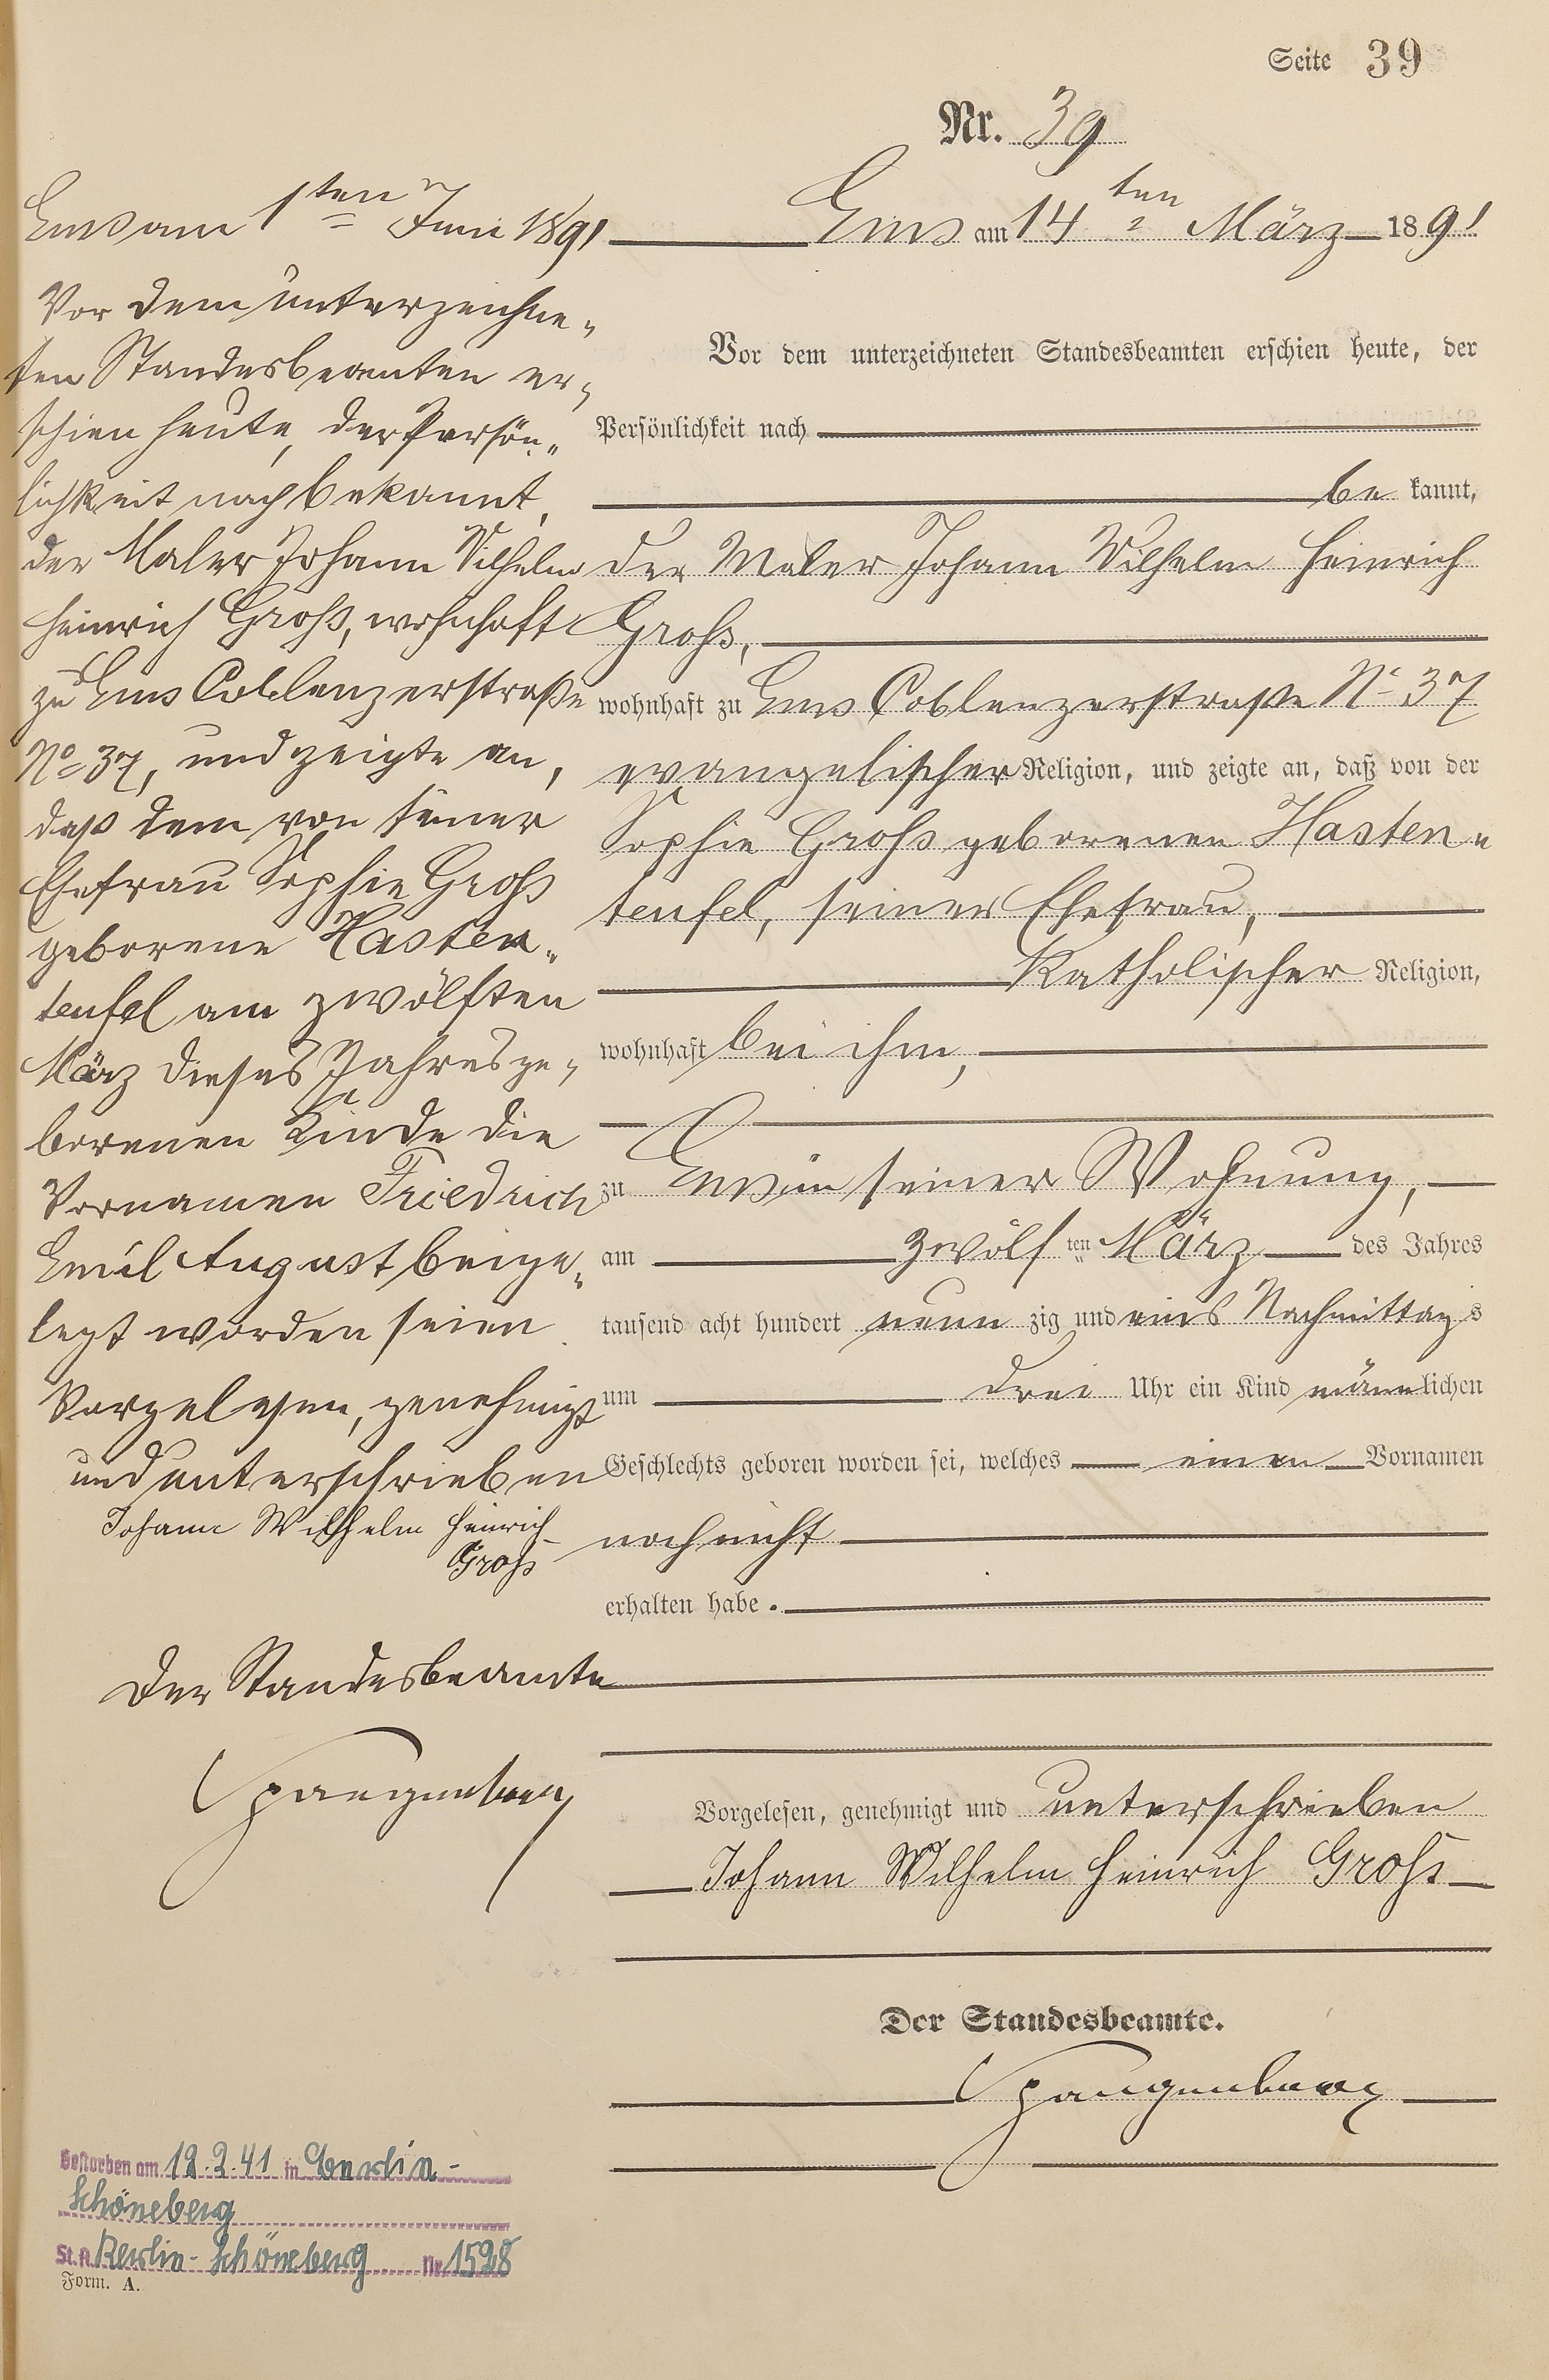 Seite 39
Nr. 39
Ems am 14ten März 1891
Vor dem unterzeichneten Standesbeamten erschien heute, der
Persönlichkeit nach
be kannt,
der Maler Johann Wilhelm Heinrich
Groß,
wohnhaft zu Ems Coblenzerstraße No 37
evangelischer Religion, und zeigte an, daß von der
Sophie Groß geborenen Hasten-
teufel, seiner Ehefrau,
Katholischer Religion,
wohnhaft bei ihm,
zu Ems in seiner Wohnung,
am zwölf ten März des Jahres
tausend acht hundert neun zig und eins Nachmittags
um drei Uhr ein Kind männlichen
Geschlechts geboren worden sei, welches einen Vornamen
noch nicht
erhalten habe.
Vorgelesen, genehmigt und unterschrieben
Johann Wilhelm Heinrich Groß
Der Standesbeamte.
Spangenberg
Ems am 1ten Juni 1891
Vor dem unterzeichne-
ten Standesbeamten er-
schien heute, der Persön-
lichkeit nach bekannt,
der Maler Johann Wilhelm
Heinrich Groß, wohnhaft
zu Ems Coblenzerstraße
No 37, und zeigte an,
daß dem von seiner
Ehefrau Sophie Groß
geborene Hasten-
teufel am zwölften
März dieses Jahres ge-
borenen Kinde die
Vornamen Friedrich
Emil August beige-
legt worden seien.
Vorgelesen, genehmigt
und unterschrieben
Johann Wilhelm Heinrich
Groß
Der Standesbeamte
Spangenberg
Gestorben am 12.2.41 in Berlin-
Schöneberg
St.A. Berlin-Schöneberg Nr. 1528
Form. A.